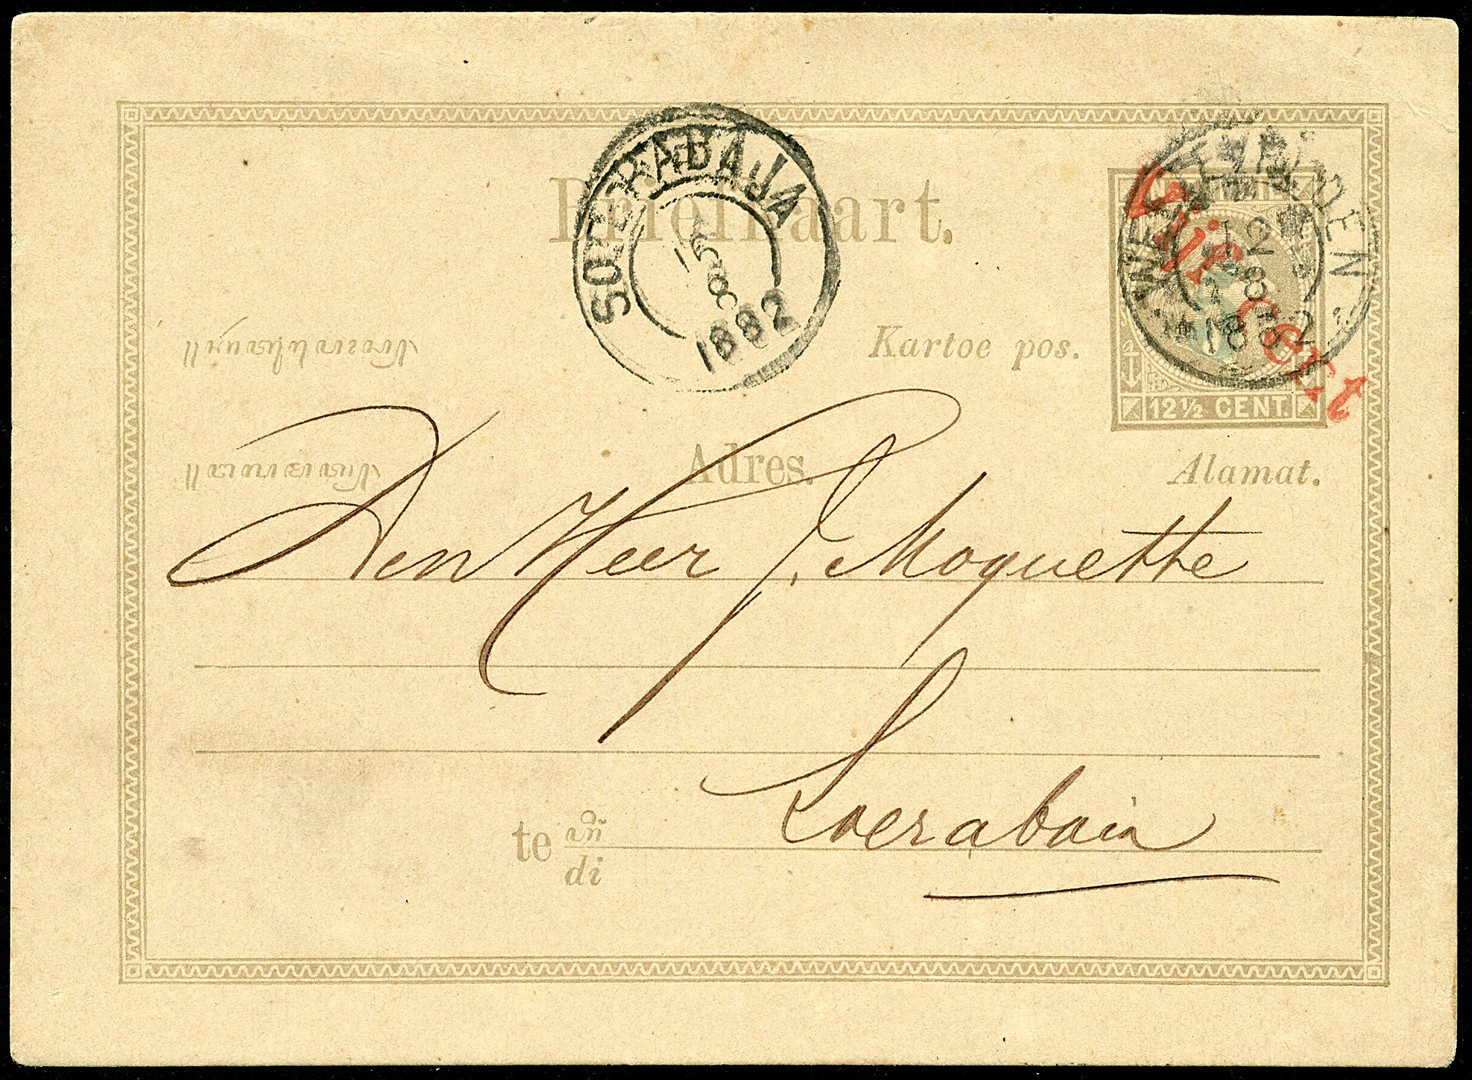 SOERABAJA
15
8
1882
WELTEVREDEN
12
8
1882
Vijf cent
Briefkaart.
Kartoe pos.
12½ CENT.
Adres.
Alamat.
Den Heer J. Moquette
te
di
Soerabaia